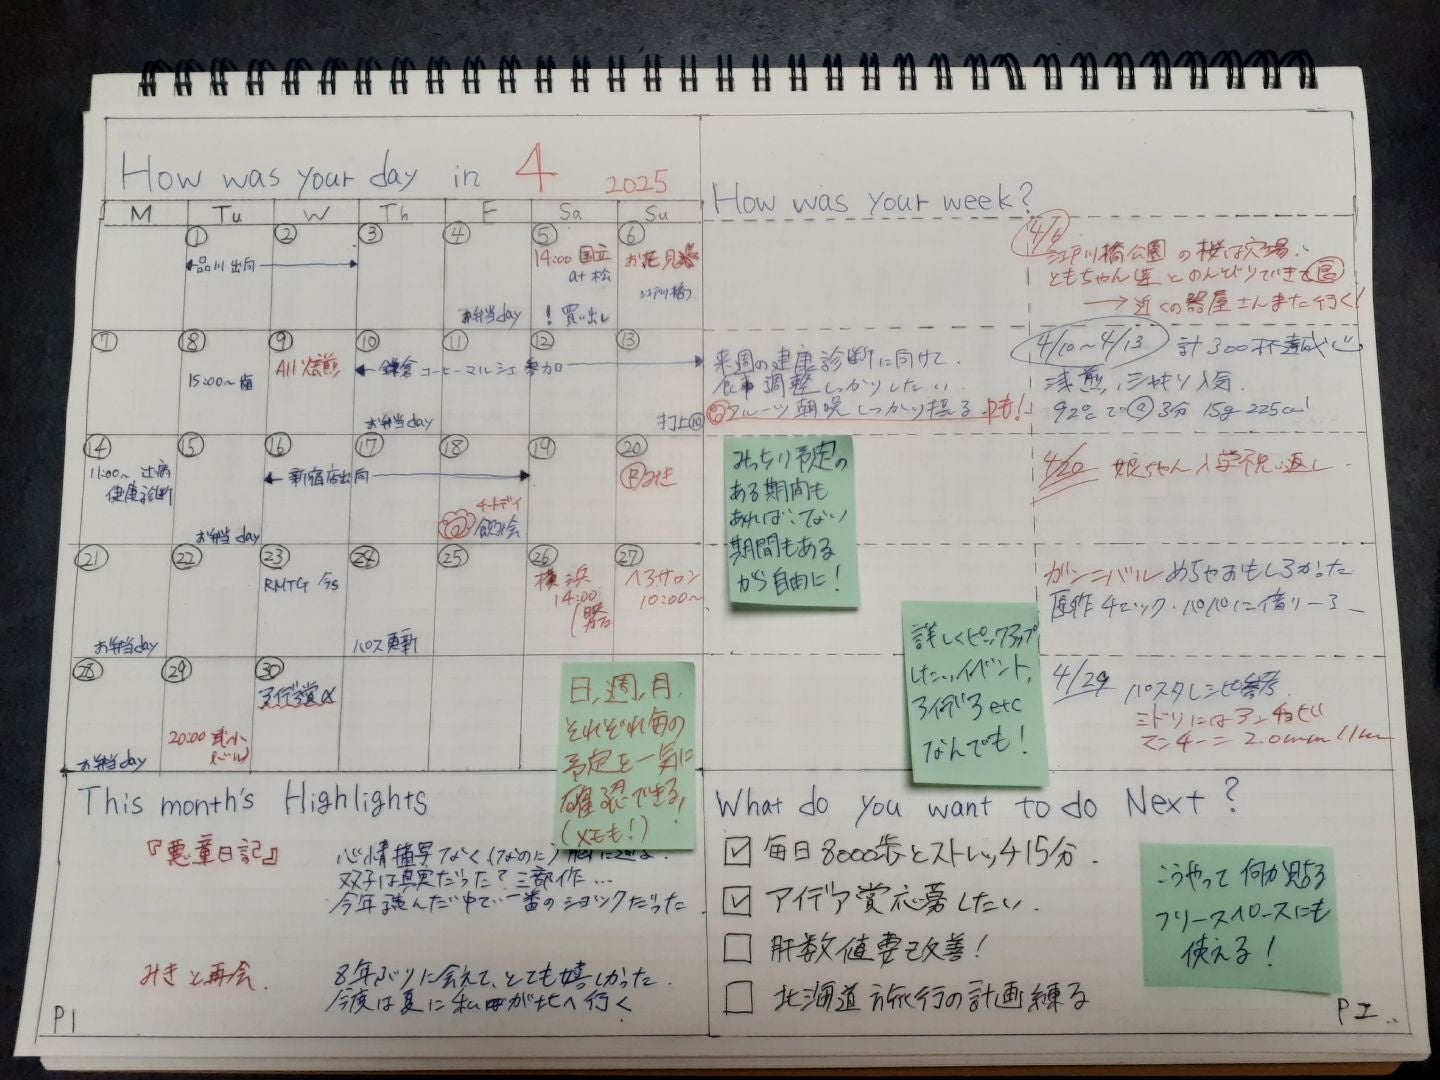 How was your day in 4 2025
M Tu W Th F Sa Su
① ② ③ ④ ⑤ ⑥
品川出向
14:00 国立
at 松
お花見
江戸川橋
お弁当day
! 買い出し
⑦ ⑧ ⑨ ⑩ ⑪ ⑫ ⑬
15:00〜歯
All 焙煎
鎌倉コーヒーマルシェ参加
お弁当day
打上
⑭ ⑮ ⑯ ⑰ ⑱ ⑲ ⑳
11:00〜
健康診断
新宿店出向
みき
チートデイ
飲み会
お弁当day
㉑ ㉒ ㉓ ㉔ ㉕ ㉖ ㉗
RMTG
横浜
14:00
ヘアサロン
10:00〜
お弁当day
パス更新
㉘ ㉙ ㉚
アイデア賞〆
20:00
お弁当day
How was your week?
4/6
江戸川橋公園の桜は穴場!
ともちゃん とのんびりできた
→近くの器屋さんまた行く!
来週の健康診断に向けて、
食事調整しっかりしたい。
フルーツ朝晩しっかり摂る
4/10〜4/13 計300杯達成
浅煎、シャキリ人気
92℃で 3分 15g 225cc!
4/20 娘ちゃん入学祝い返し
みっちり予定の
ある期間も
あれば、ない
期間もある
から自由に!
ガンニバルめちゃおもしろかった
原作チェック・パパに借りーる
詳しくピックアップ
したいイベント、
アイデアetc
なんでも!
4/29 パスタレシピ参考
ミドリにはアンチョビ
マンチーニ 2.0mm
日、週、月、
それぞれ毎の
予定を一気に
確認できる!
(メモも!)
This month's Highlights
『悪童日記』
心情描写なく(なのに)
双子は真実だった?三部作...
今年読んだ中で一番のショックだった
みきと再会
8年ぶりに会えて、とても嬉しかった
今度は夏に私が北へ行く
P1
What do you want to do Next?
毎日8000歩とストレッチ15分.
アイデア賞応募したい.
肝数値要改善!
北海道旅行の計画練る
こうやって何か貼る
フリースペースにも
使える!
P2..